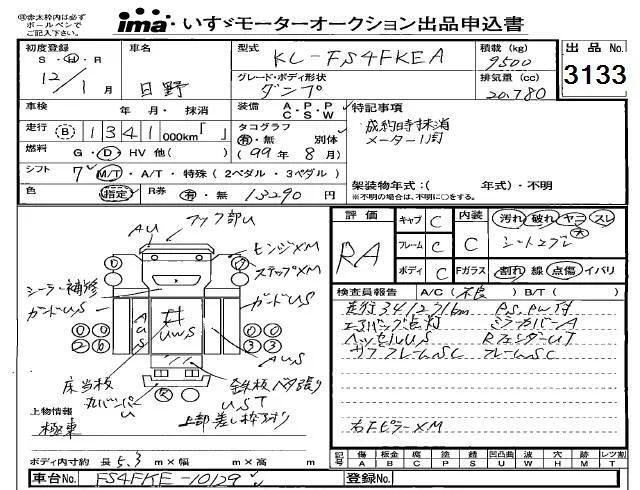 ※赤太枠内は必ず
ボールペンで
ご記入下さい。
ima いすゞモーターオークション出品申込書
初度登録 S・H・R 12/1月
車名 日野
型式 KL-FS4FKEA
グレード・ボディ形状 ダンプ
積載(kg) 9500
排気量(cc) 20,780
出品No. 3133
車検 年・月・抹消
装備 A・P・P C・S・W
特記事項
成約時抹消
メーター1周
走行 (B) 1341000km「 」
タコグラフ 有・無 別体 (99年 8月)
燃料 G・D・HV 他( )
シフト 7 M/T・A/T・特殊(2ペダル・3ペダル)
架装物年式:( 年式)・不明
※不明の場合は、不明に○をする。
色 指定
R券 有・無 13290円
評価 RA
キャブ C
フレーム C
ボディ C
内装 C
汚れ 破れ・ヤニ・スレ
大
Fガラス 割れ 線 点傷・イバリ
検査員報告 A/C(不良) B/T( )
走行341271km P.S.P.W付
エアバッグ点灯 ミラーカバーA
ベッセルUS RフェンダーUT
サブフレームSC フレームSC
右FピラーXM
AU
アッパ部U
ヒンジXM
ステップXM
シーラー補修
ガードUS
ガードUS
AUS
床当板
鉄板ベタ張り
UST
上部差し枠有り
上物情報
極東
ボディ内寸約 長5.3m×幅 m×高 m
記号 傷A 板金B 腐C 塗P 錆S 凹凸曲U 波W 穴H 跡M レツ割T
車台No. FS4FKE-10129
登録No.